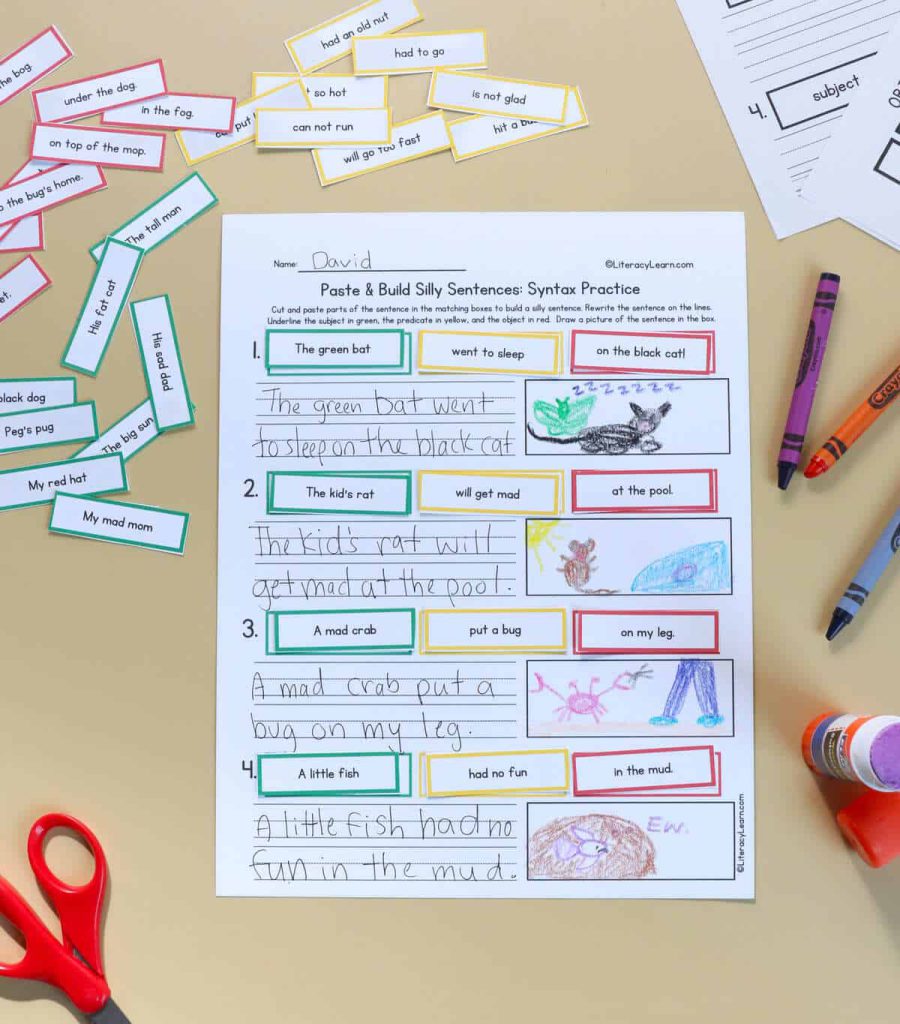 had an old nut
had to go
so hot
is not glad
can not run
hit a
will go too fast
the bog.
under the dog.
in the fog.
on top of the mop.
the bug's home.
The tall man
His fat cat
His sad dad
black dog
Peg's pug
The big sun
My red hat
My mad mom
4. subject
Name: David
©LiteracyLearn.com
Paste & Build Silly Sentences: Syntax Practice
Cut and paste parts of the sentence in the matching boxes to build a silly sentence. Rewrite the sentence on the lines.
Underline the subject in green, the predicate in yellow, and the object in red. Draw a picture of the sentence in the box.
1. The green bat went to sleep on the black cat!
The green bat went
to sleep on the black cat
zzzzzzzz
2. The kid's rat will get mad at the pool.
The kid's rat will
get mad at the pool.
3. A mad crab put a bug on my leg.
A mad crab put a
bug on my leg.
4. A little fish had no fun in the mud.
A little fish had no
fun in the mud.
Ew.
©LiteracyLearn.com
Crayola